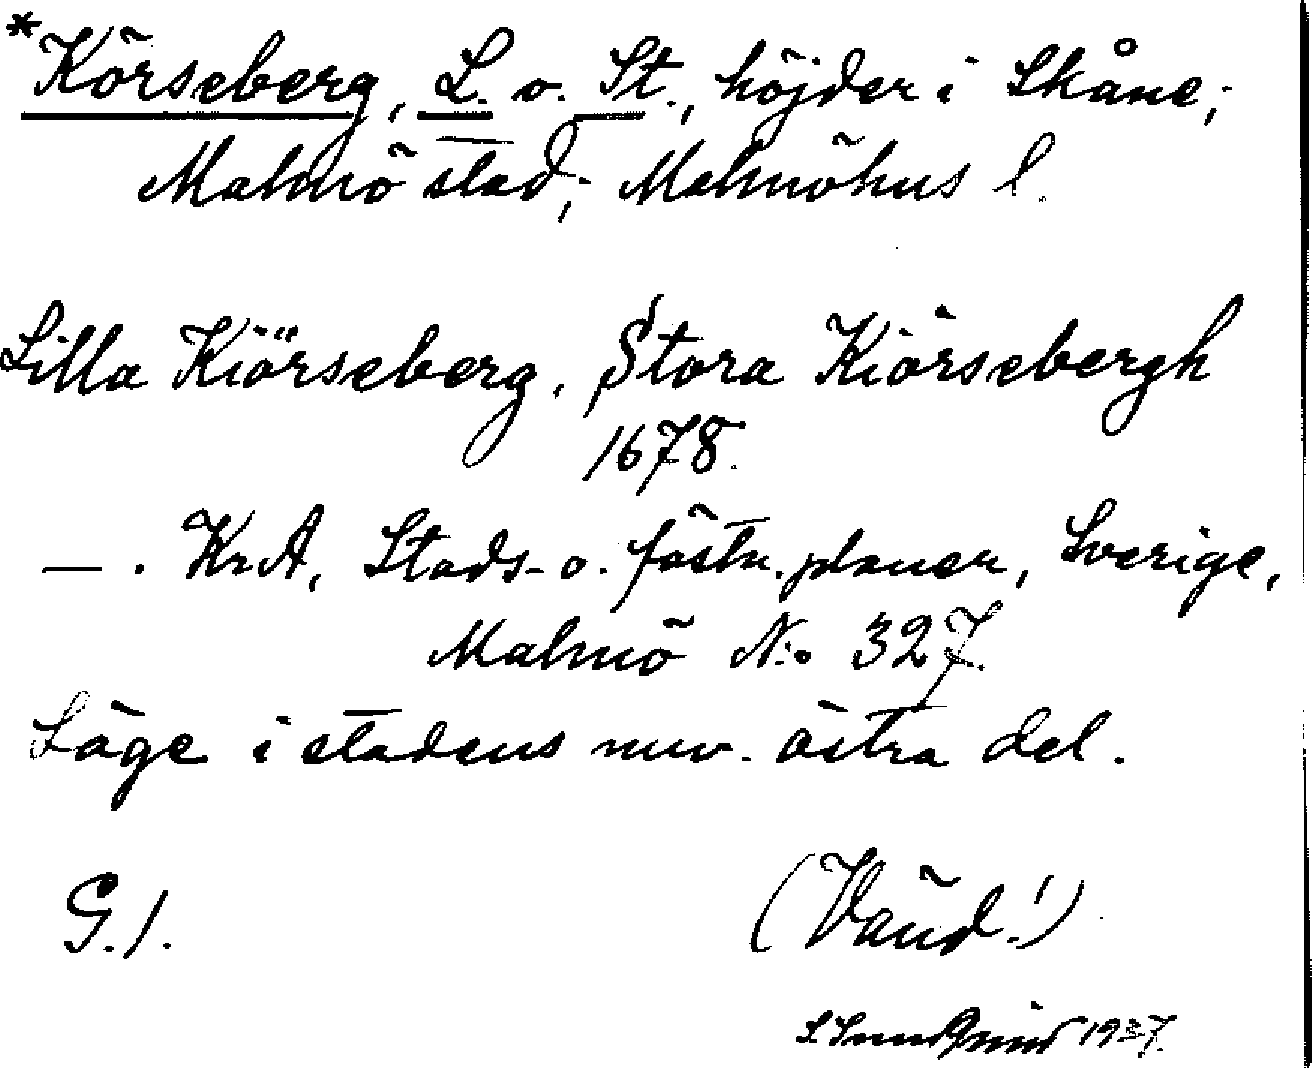 *Körseberg, L. o. St., höjder i Skåne;
Malmö stad; Malmöhus l.
Lilla Kiörseberg, Stora Kiörsebergh
1678.
— . KrA, Stads- o. fästn. planer, Sverige,
Malmö No 327.
Läge i stadens nuv. östra del.
G. 1.
(Vänd!)
1937.